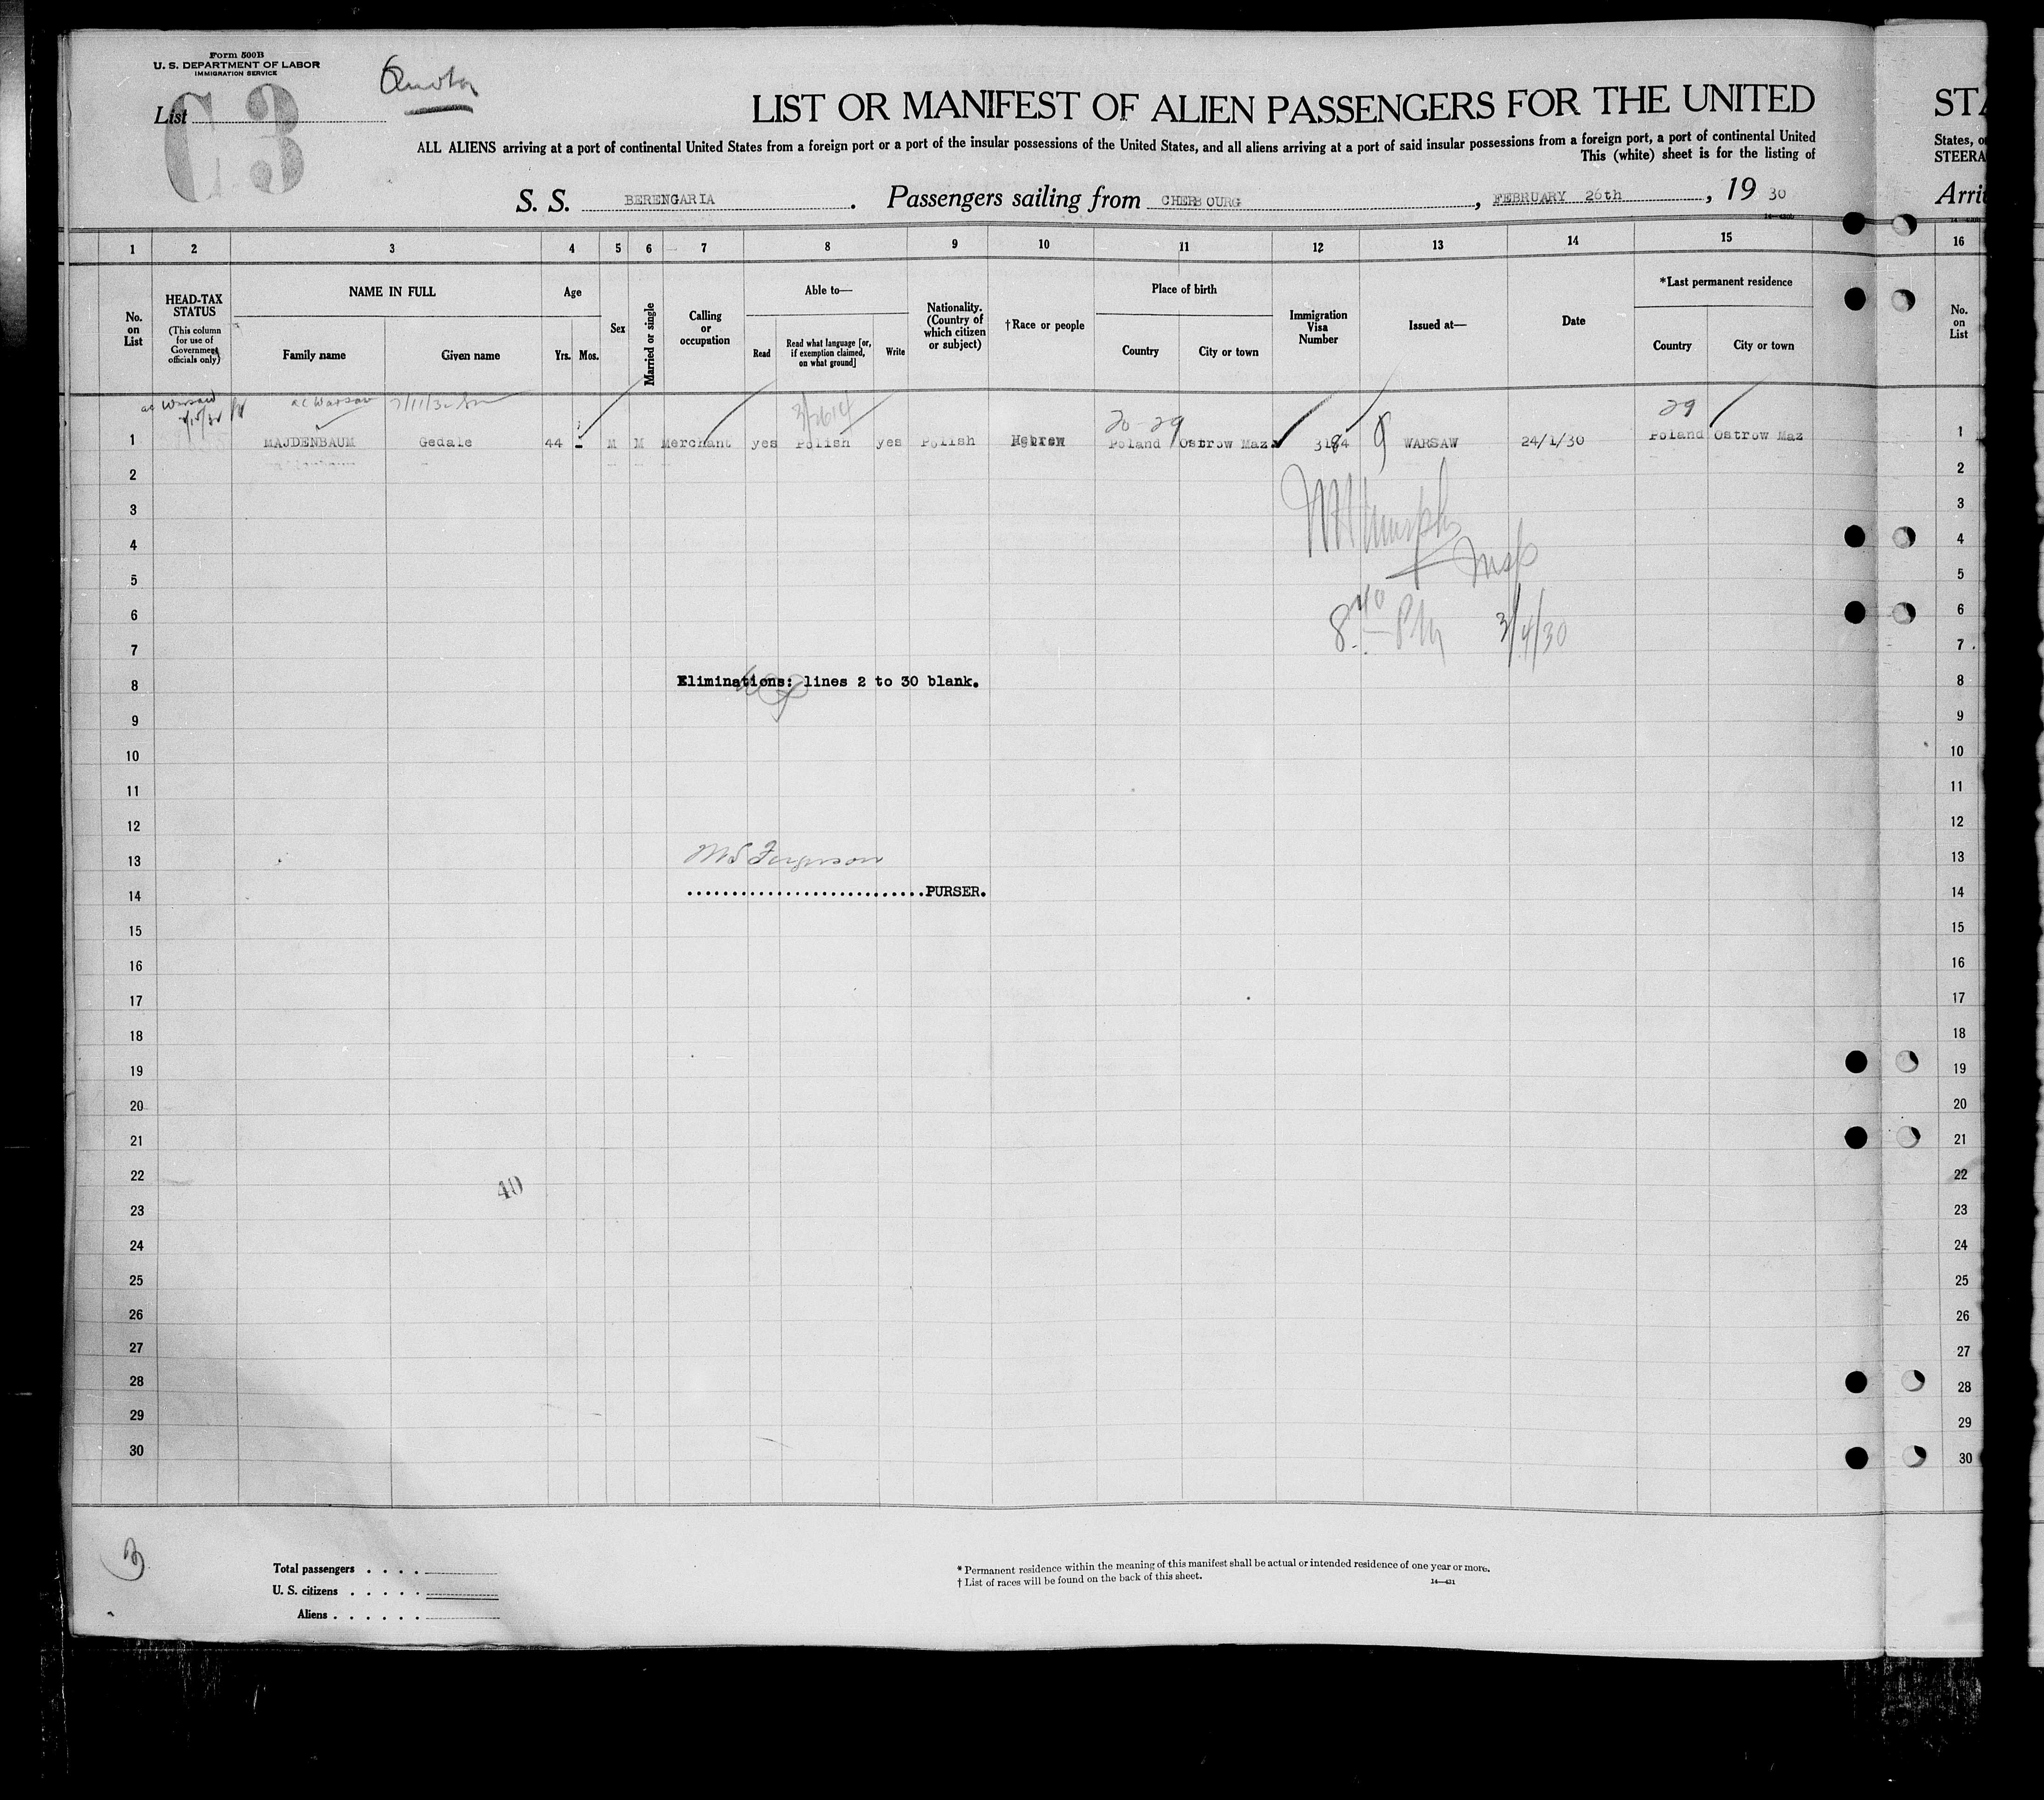 Form 500B
U. S. DEPARTMENT OF LABOR
IMMIGRATION SERVICE
List
C 3
Quota
LIST OR MANIFEST OF ALIEN PASSENGERS FOR THE UNITED
ALL ALIENS arriving at a port of continental United States from a foreign port or a port of the insular possessions of the United States, and all aliens arriving at a port of said insular possessions from a foreign port, a port of continental United
This (white) sheet is for the listing of
S. S. BERENGARIA. Passengers sailing from CHERBOURG, FEBRUARY 26th, 19 30
STA
States, o
STEERA
Arri
1 2 3 4 5 6 7 8 9 10 11 12 13 14 15 16
No. on List
HEAD-TAX STATUS
(This column for use of Government officials only)
NAME IN FULL
Family name
Given name
Age
Yrs.
Mos.
Sex
Married or single
Calling or occupation
Able to—
Read
Read what language [or, if exemption claimed, on what ground]
Write
Nationality. (Country of which citizen or subject)
†Race or people
Place of birth
Country
City or town
Immigration Visa Number
Issued at—
Date
*Last permanent residence
Country
City or town
No. on List
ac Warsaw
ac Warsaw
20-29
29
1 MAJDENBAUM Gedale 44 - M M Merchant yes Polish yes Polish Hebrew Poland Ostrow Maz 3184 WARSAW 24/1/30 Poland Ostrow Maz 1
2 2
3 3
4 4
Murphy
Insp
5 5
6 6
8 40 PM 3/4/30
7 7
8 Eliminations: lines 2 to 30 blank. 8
9 9
10 10
11 11
12 12
13 Ferguson 13
14 ..........................PURSER. 14
15 15
16 16
17 17
18 18
19 19
20 20
21 21
22 40 22
23 23
24 24
25 25
26 26
27 27
28 28
29 29
30 30
Total passengers . . . .
U. S. citizens . . . . .
Aliens . . . . . .
* Permanent residence within the meaning of this manifest shall be actual or intended residence of one year or more.
† List of races will be found on the back of this sheet.
14—421